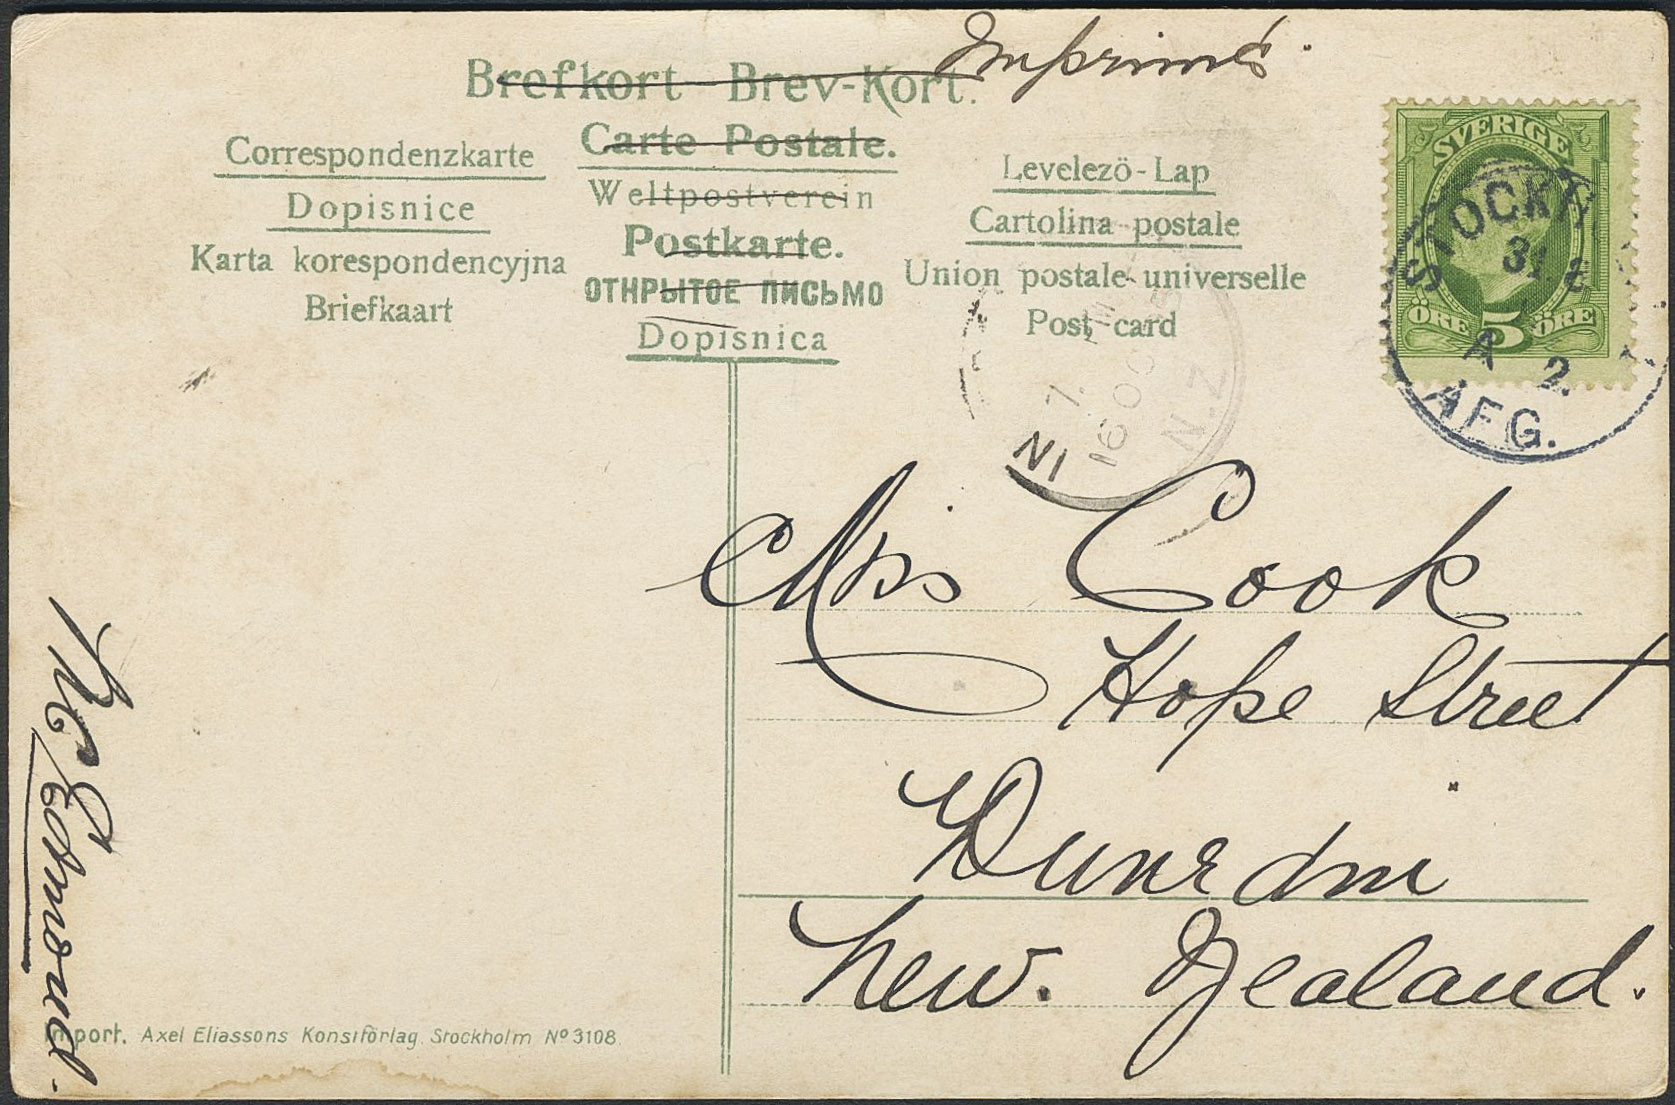 Imprimé.
Brefkort - Brev-Kort.
Carte Postale.
Correspondenzkarte
Weltpostverein
Levelezö-Lap
Dopisnice
Postkarte.
Cartolina postale
Karta korespondencyjna
ОТКРЫТОЕ ПИСЬМО
Union postale universelle
Briefkaart
Dopisnica
Post card
SVERIGE
ÖRE 5 ÖRE
STOCKH
31 8
A 2.
AFG.
16 OC
N.Z
Miss Cook
Hope Street
Dunedin
New. Zealand.
Edmond.
Import. Axel Eliassons Konstförlag Stockholm No 3108